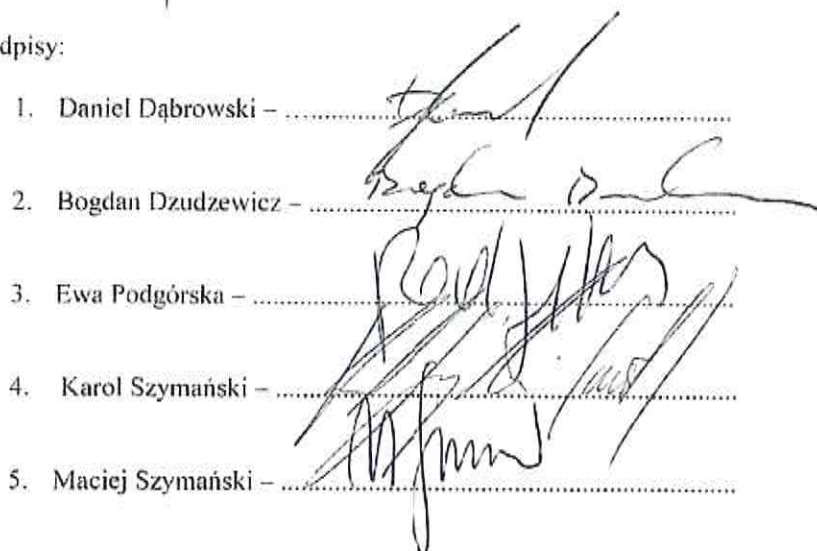 dpisy:
1. Daniel Dąbrowski – ........................................
2. Bogdan Dzudzewicz – ........................................
3. Ewa Podgórska – ........................................
4. Karol Szymański – ........................................
5. Maciej Szymański – ........................................